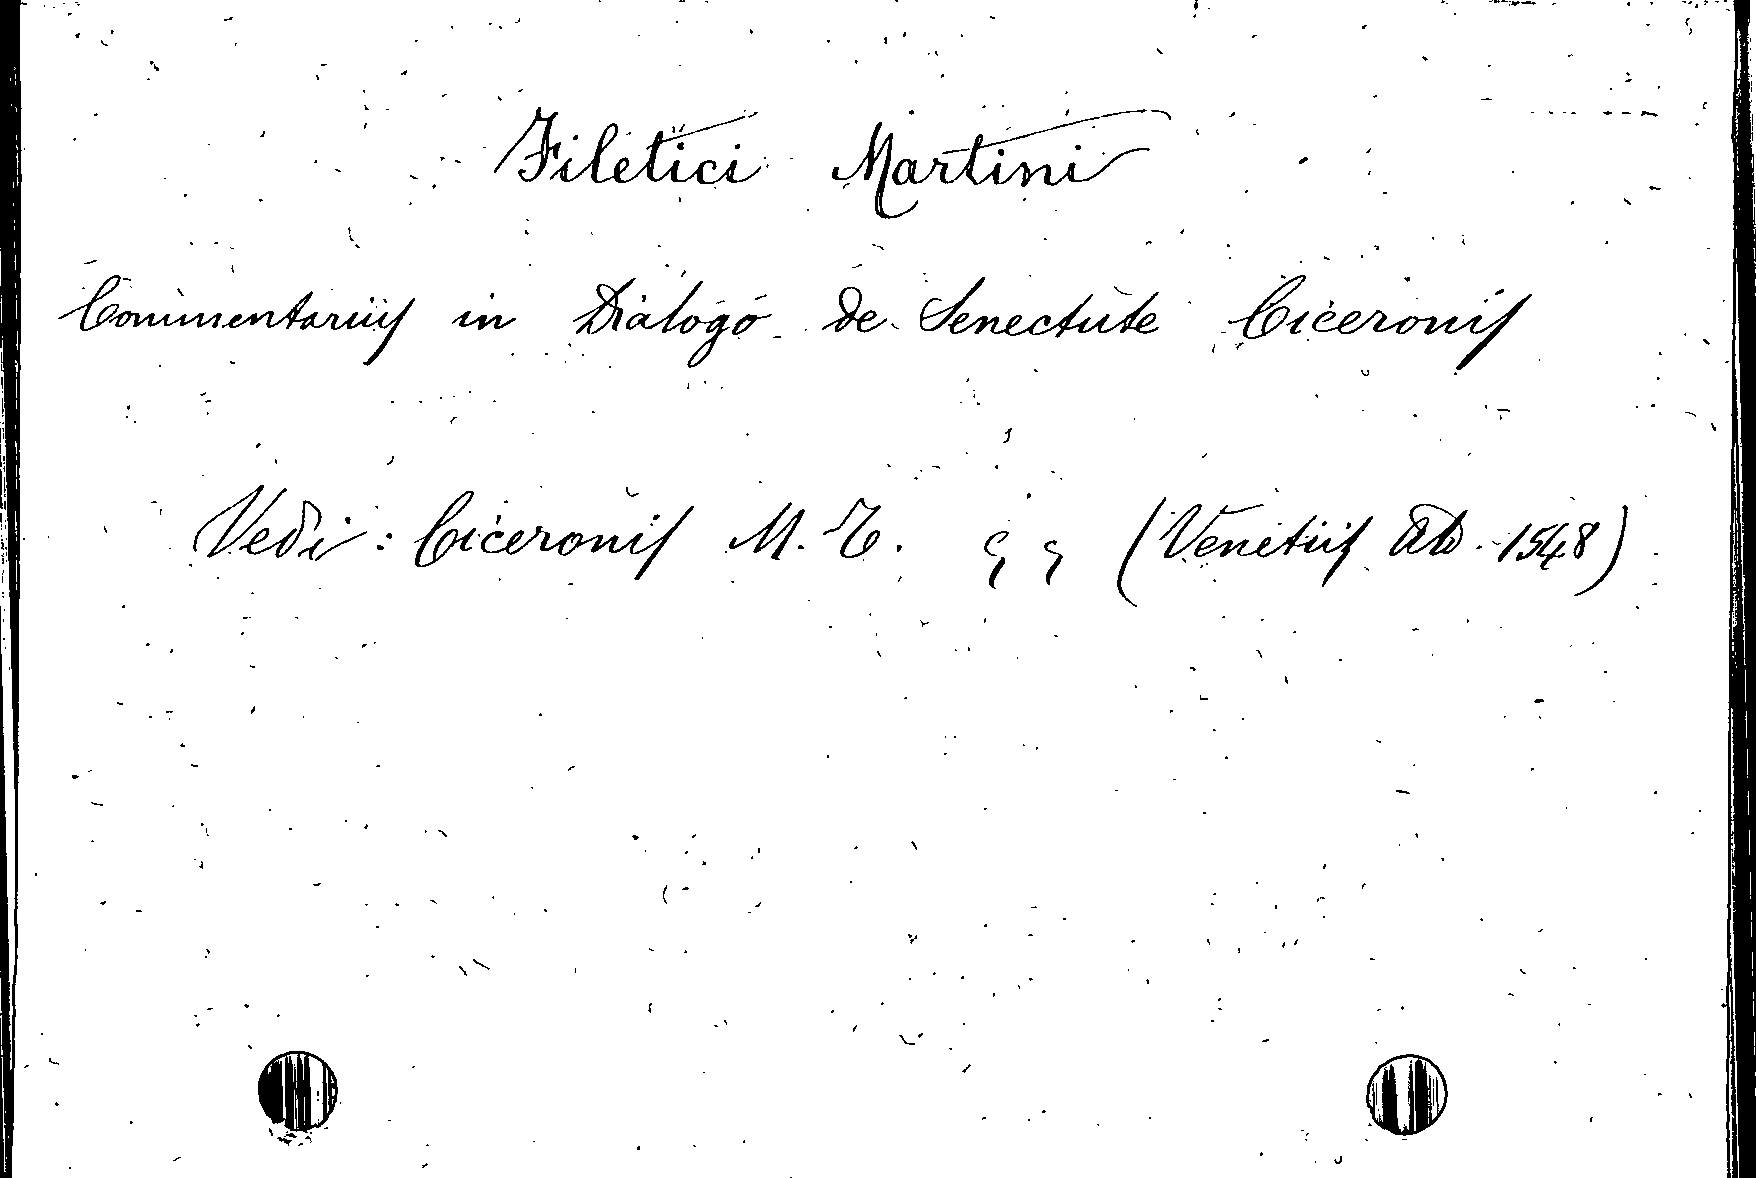 Filetici Martini
Commentariis in Dialogo de Senectute Ciceronis
Vedi: Ciceronis M. T. (Venetiis 1548)